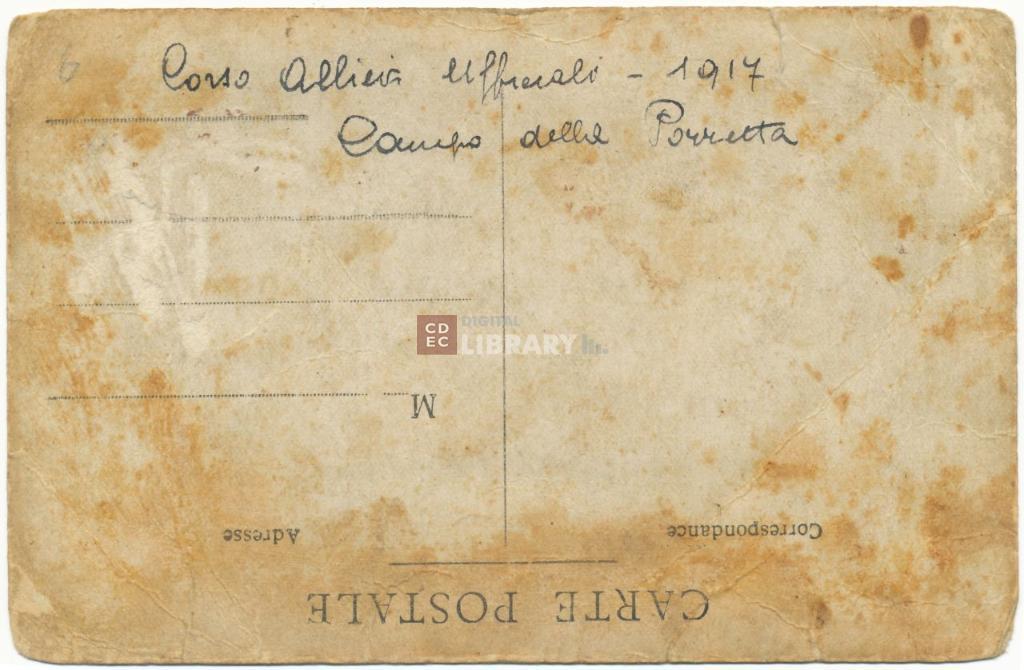 6
Corso Allievi Ufficiali - 1917
Campo della Porretta
CD
EC
DIGITAL
LIBRARY
M
Adresse
Correspondance
CARTE POSTALE